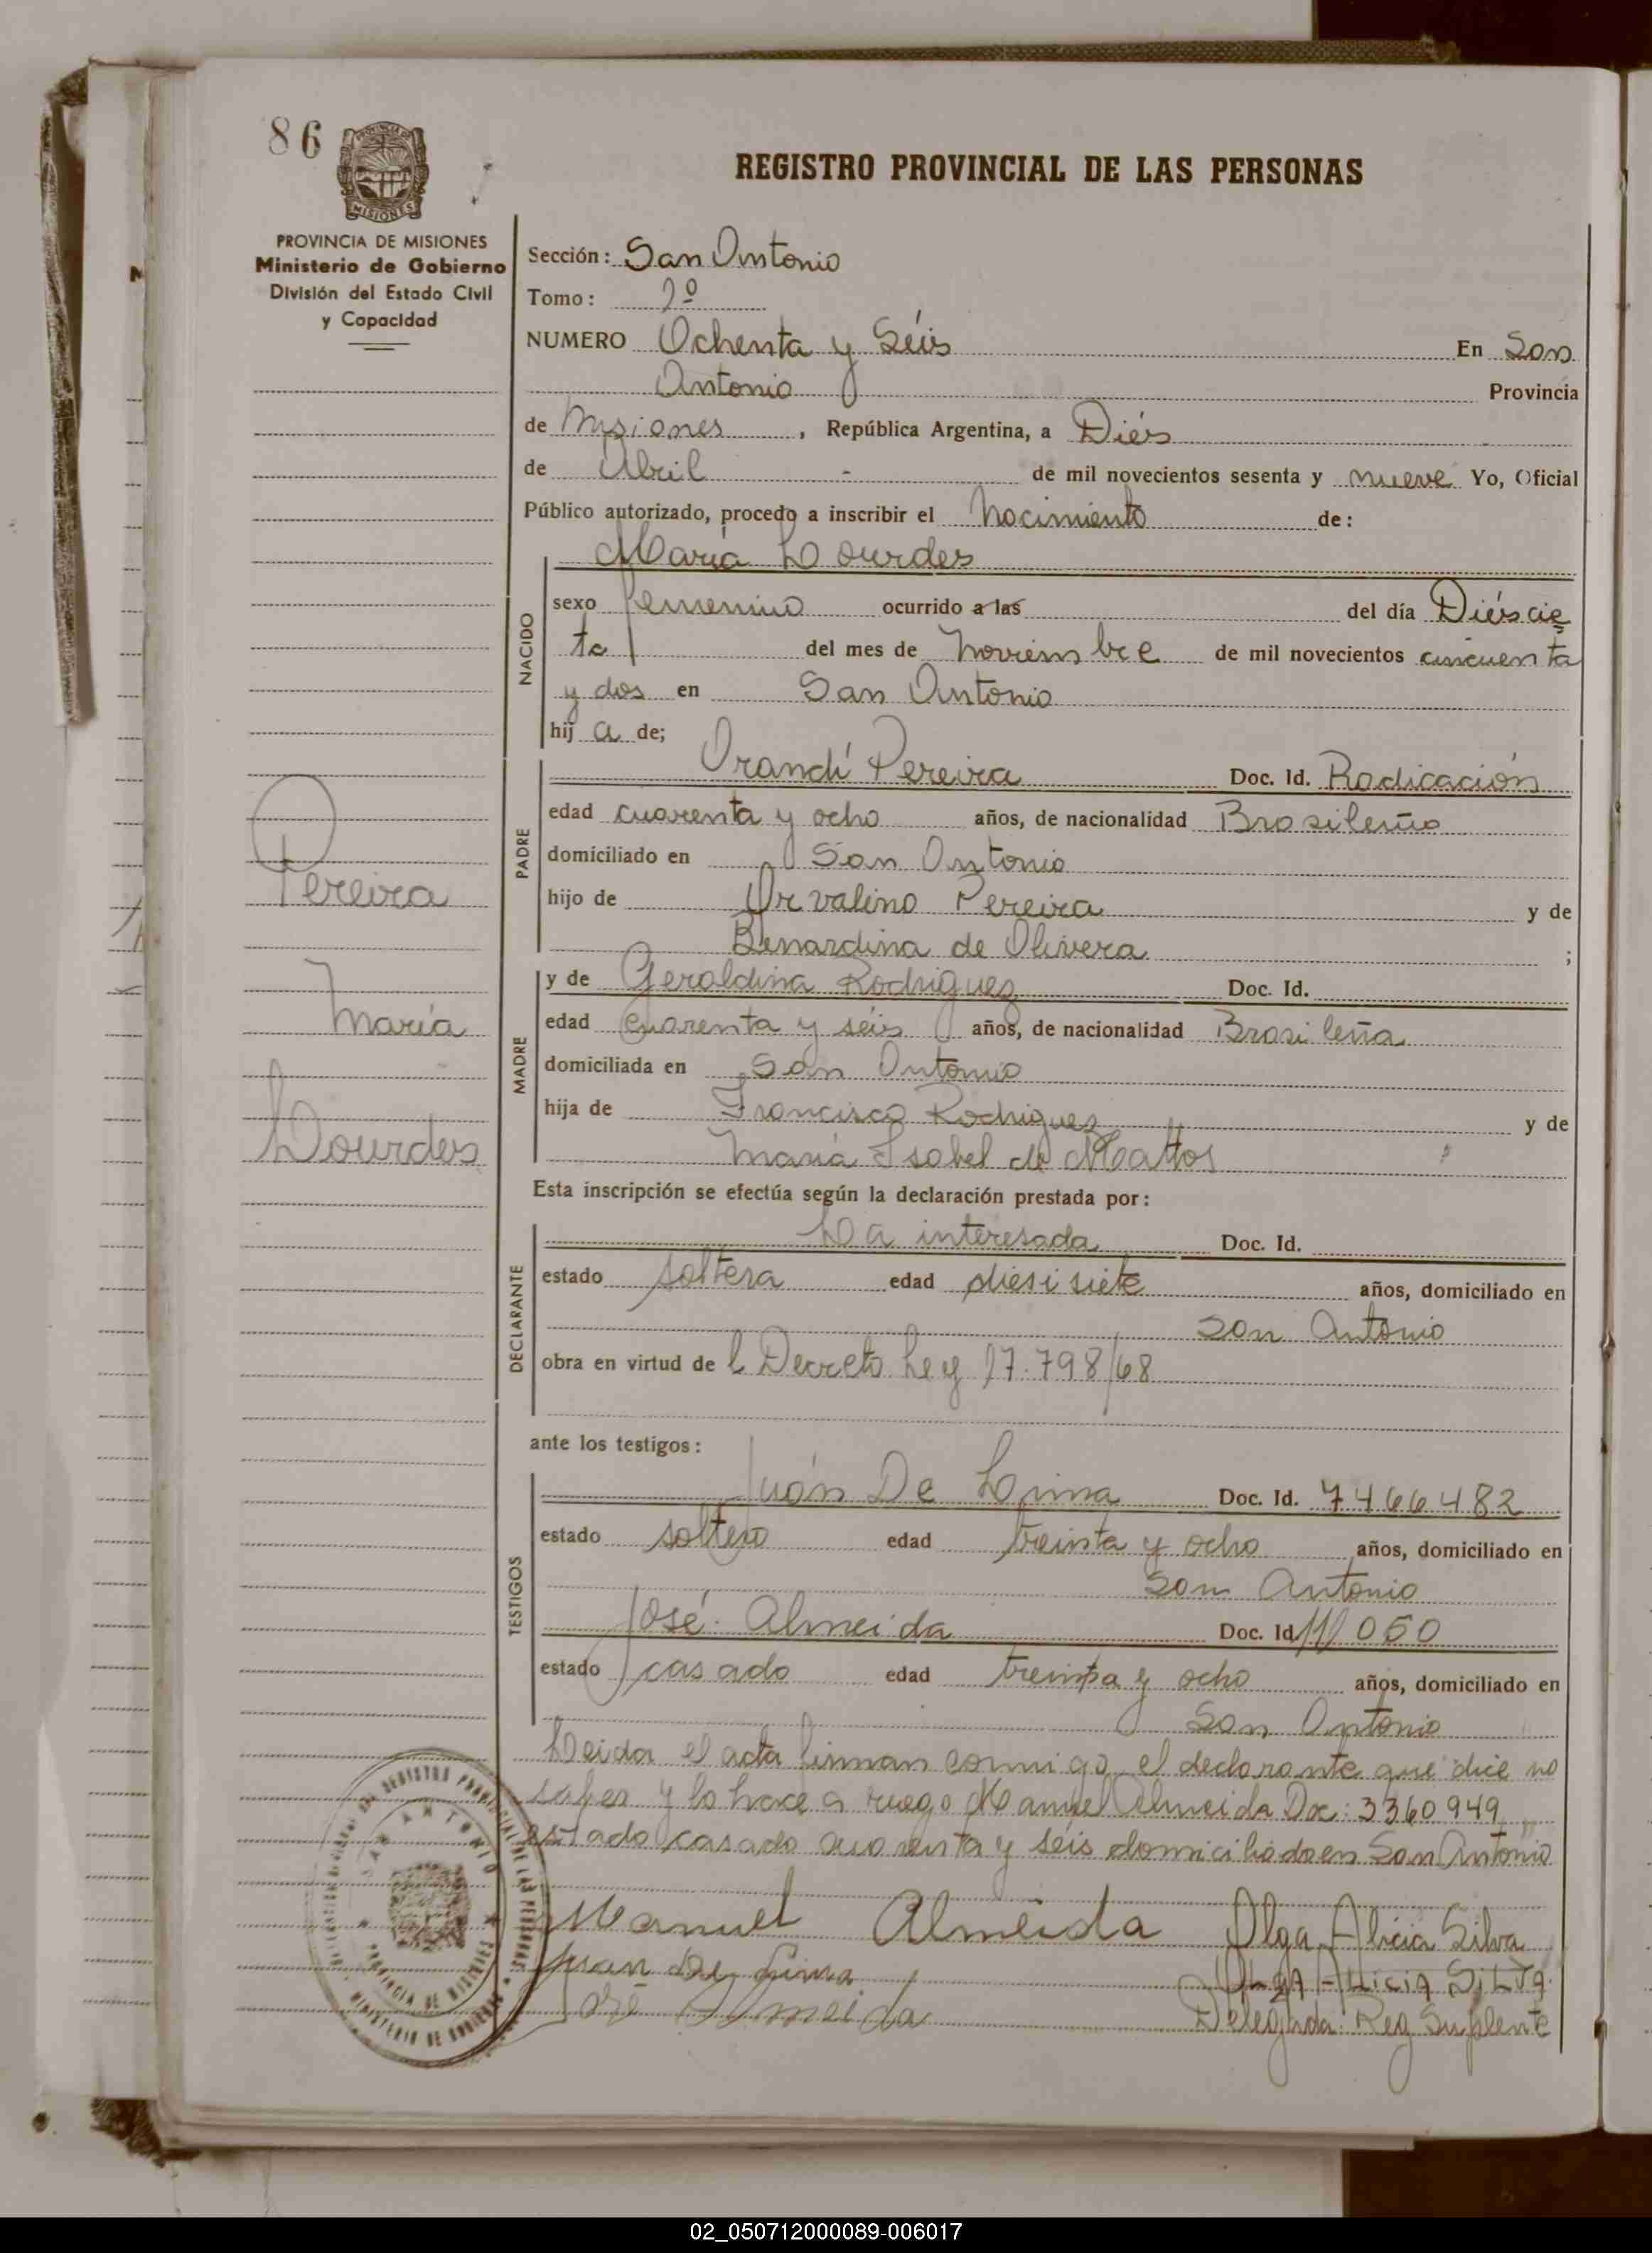 86
REGISTRO PROVINCIAL DE LAS PERSONAS
PROVINCIA DE MISIONES
Ministerio de Gobierno
División del Estado Civil
y Capacidad
Sección: San Antonio
Tomo: 1º
NUMERO Ochenta y Séis En San
Antonio Provincia
de Misiones, República Argentina, a Diés
de Abril - de mil novecientos sesenta y nueve Yo, Oficial
Público autorizado, procedo a inscribir el Nacimiento de:
María Lourdes
NACIDO
sexo femenino ocurrido a las del día Diéscie
te del mes de Noviembre de mil novecientos cincuenta
y dos en San Antonio
hij a de;
PADRE
Orandí Pereira Doc. Id. Radicación
edad cuarenta y ocho años, de nacionalidad Brasileño
domiciliado en San Antonio
hijo de Orvalino Pereira y de
Benardina de Olivera ;
Pereira
María
Lourdes
MADRE
y de Geraldina Rodriguez Doc. Id.
edad cuarenta y séis años, de nacionalidad Brasileña
domiciliada en San Antonio
hija de Francisco Rodriguez y de
María Isabel de Mattos
Esta inscripción se efectúa según la declaración prestada por:
DECLARANTE
La interesada Doc. Id.
estado soltera edad diesisiete años, domiciliado en
San Antonio
obra en virtud de l Decreto Ley 17.798/68
ante los testigos:
TESTIGOS
Juán De Lima Doc. Id. 7466482
estado soltero edad treinta y ocho años, domiciliado en
San Antonio
José Almeida Doc. Id 111050
estado casado edad treinta y ocho años, domiciliado en
San Antonio
Leida el acta firman conmigo el declarante que dice no
saber y lo hace a ruego Manuel Almeida Doc: 3360949
estado casado cuarenta y seis domiciliado en San Antonio
Manuel Almeida Olga Alicia Silva
Juan De Lima Olga Alicia Silva
José Almeida Delegada Reg Suplente
SAN ANTONIO
PROVINCIA DE MISIONES
MINISTERIO DE GOBIERNO
02_050712000089-006017